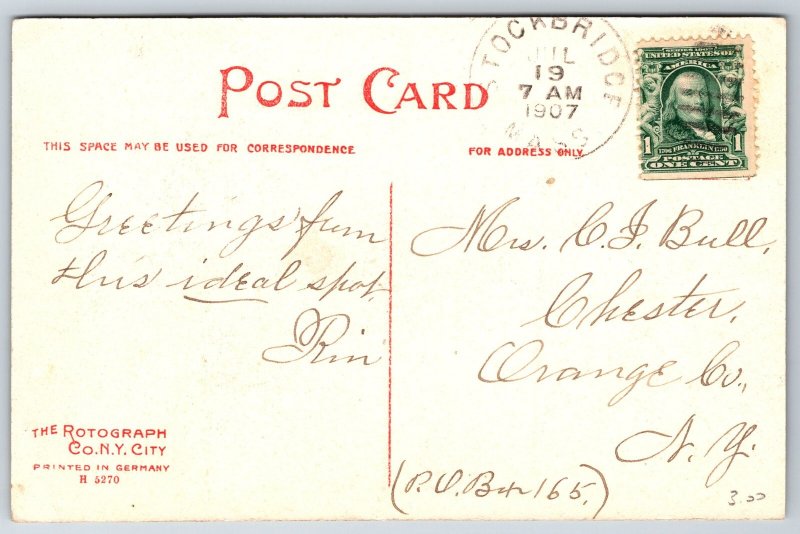 POST CARD
THIS SPACE MAY BE USED FOR CORRESPONDENCE
FOR ADDRESS ONLY
STOCKBRIDGE
19
7 AM
1907
MASS
SERIES 1902
UNITED STATES OF
AMERICA
1 FRANKLIN 1
POSTAGE
ONE CENT
Greetings from
this ideal spot.
Mrs. C. F. Bull,
Chester,
Orange Co.,
N. Y.
(P.O. Box 165.)
THE ROTOGRAPH
CO. N.Y. CITY
PRINTED IN GERMANY
H 5270
3.00